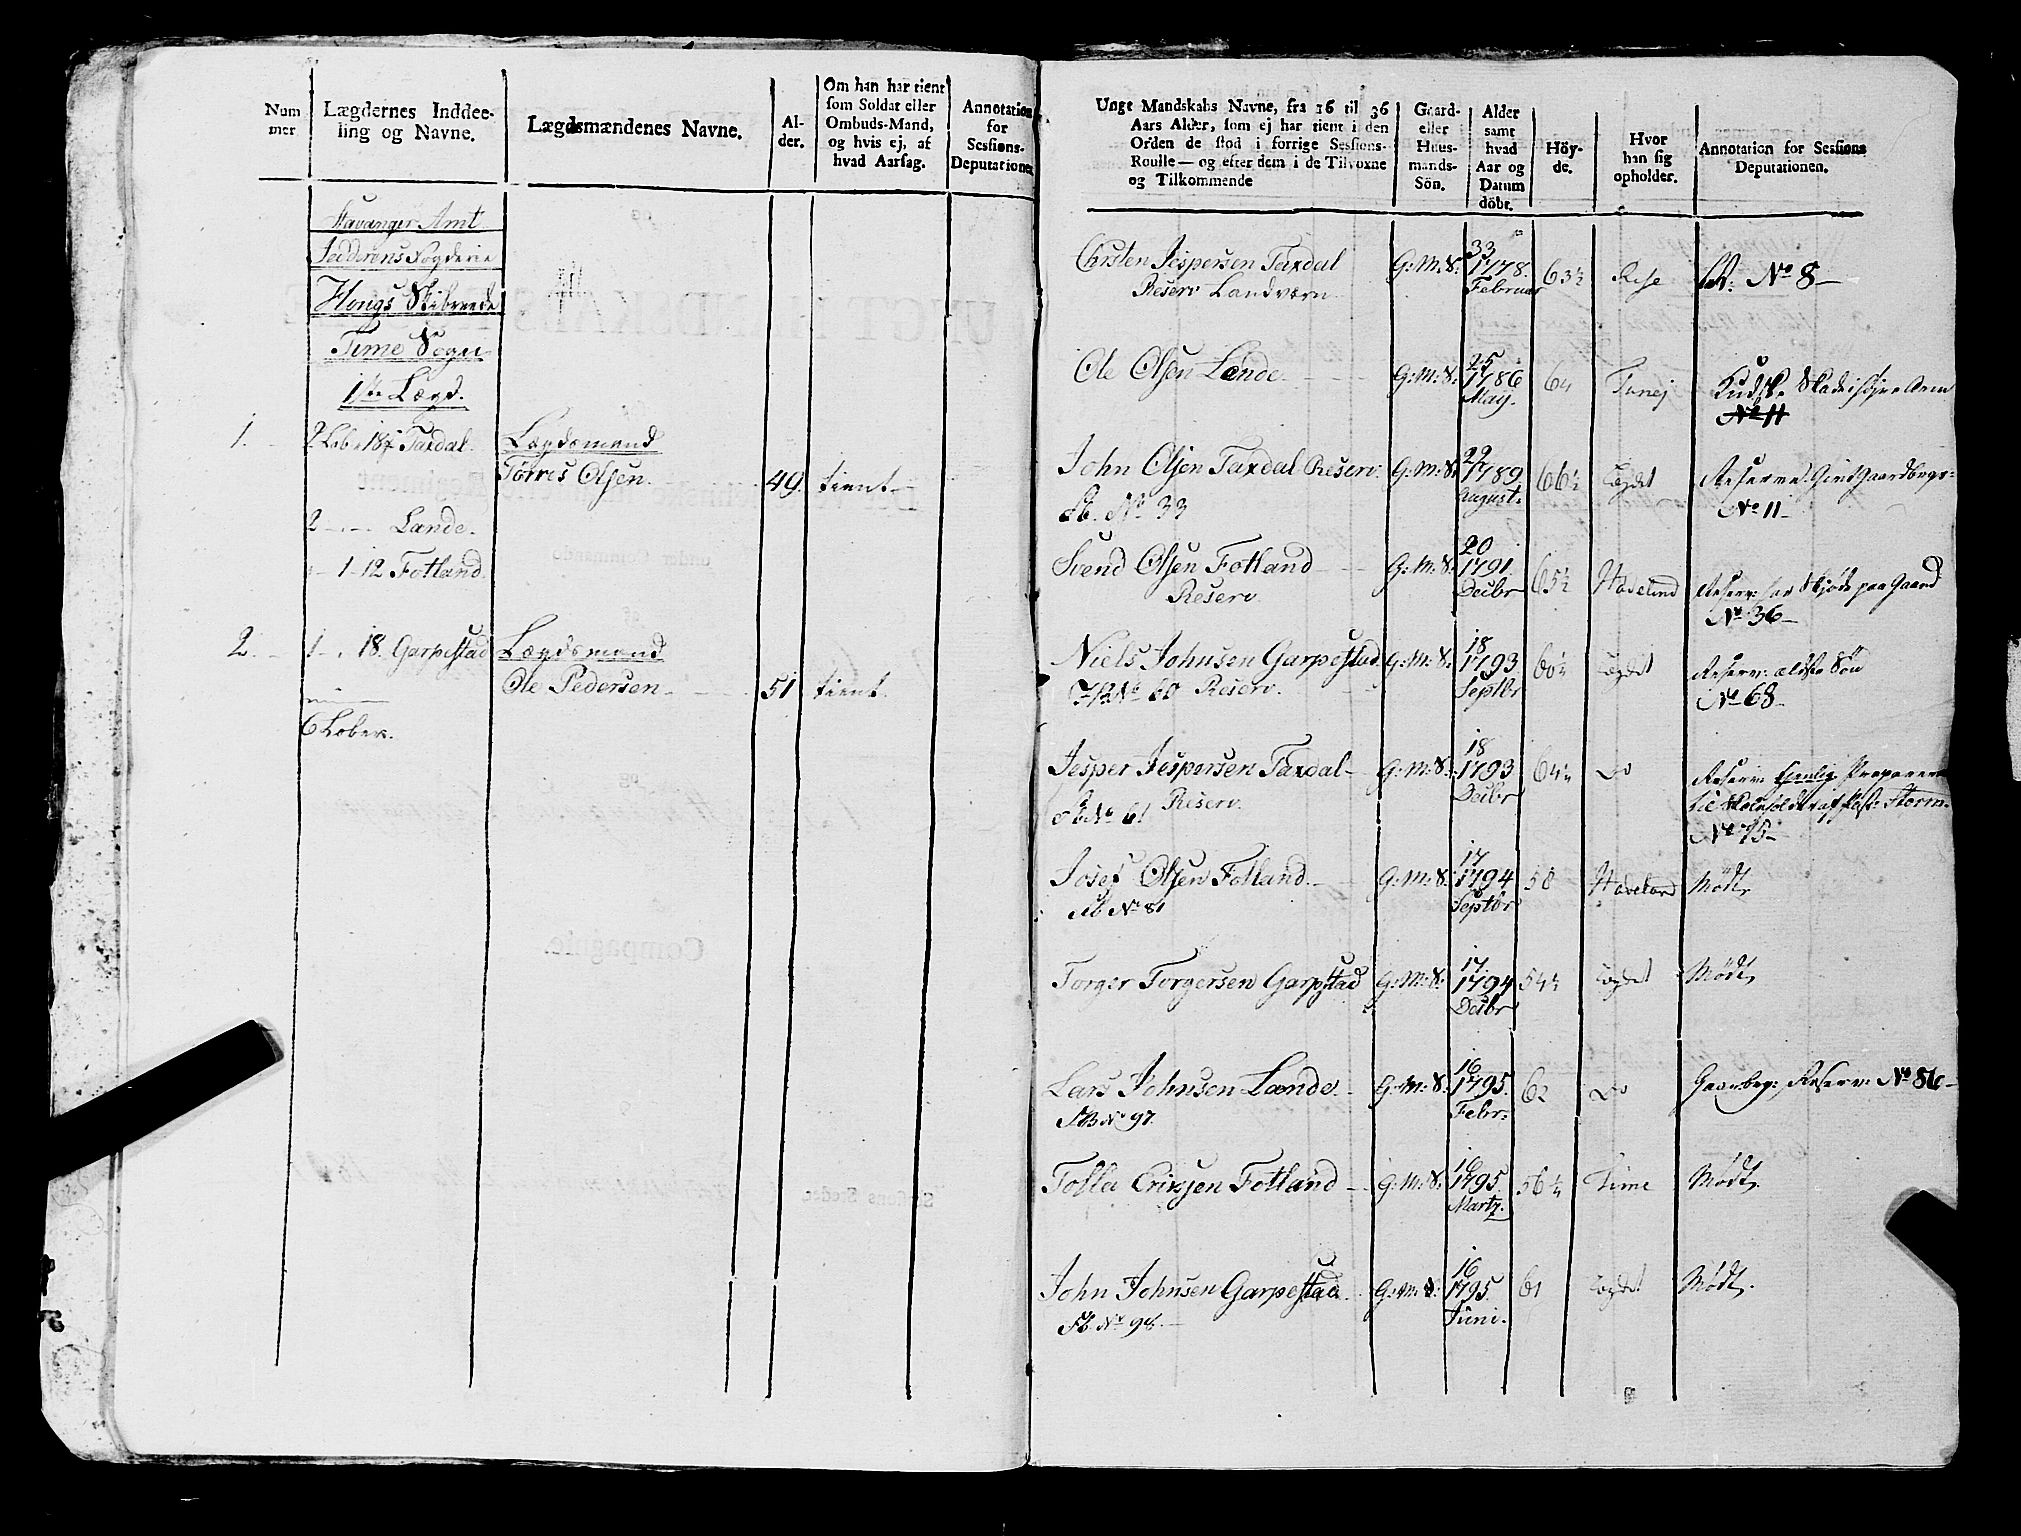 Num
mer
Lægdernes Inddee-
ling og Navne.
Lægdsmændenes Navne.
Al-
der.
Om han har tient
som Soldat eller
Ombuds-Mand,
og hvis ej, af
hvad Aarsag.
Annotation
for
Sessions-
Deputationen
Stavanger Amt
Jedderens Fogderie
Haugs Skibreede
Time Sogn
1ste Lægd.
1. Taxdal. Lægdsmand
Torres Olsen. 49. tient
2 Lande.
1-12 Fotland.
2. 1 18. Garpestad Lægdsmand
Ole Pedersen 51 tient.
6 Lober.
Ungt Mandskabs Navne, fra 16 til 36
Aars Alder, som ej har tient i den
Orden de stod i forrige Sessions-
Roulle — og efter dem i de Tilvoxne
og Tilkommende
Gaard-
eller
Huus-
mands-
Sön.
Alder
samt
hvad
Aar og
Datum
döbt.
Höy-
de.
Hvor
han sig
opholder.
Annotation for Sessions
Deputationen.
33
Chrsten Jespersen Taxdal G:M:S: 1778. 63½ Rese No 8
Reserv Landværn Februar
25
Ole Olsen Lende G:M:S: 1786 64
May.
No 11
22
John Olsen Taxdal Reserv. G:M:S: 1789 66½ Lægdet Reserve
No 33 August No 11
20
Svend Olsen Fotland G:M:S: 1791 65½
Reserv. Decbr No 36
18
Niels Johnsen Garpestad G:M:S: 1793 60½ Lægdet Reserv: ælste Søn
No 60 Reserv. Septbr No 68
18
Jesper Jespersen Taxdal G:M:S: 1793 64½ Do
No 61 Reserv. Decbr
No 75
17
Josef Olsen Fotland G:M:S: 1794 58 Mødt
No 81 Septbr
17
Torger Torgersen Garpestad G:M:S: 1794 54½ Lægdet Mødt
Decbr
16
Lars Johnsen Lende. G:M:S: 1795. 62 Do Reserv: No 86
No 97. Febr:
16
Tollef Eriksen Fotland G:M:S: 1795 56½ Time Mødt.
Martz.
16
John Johnsen Garpestad. G:M:S: 1795 61 Lægdet Mødt.
No 98. Juni.